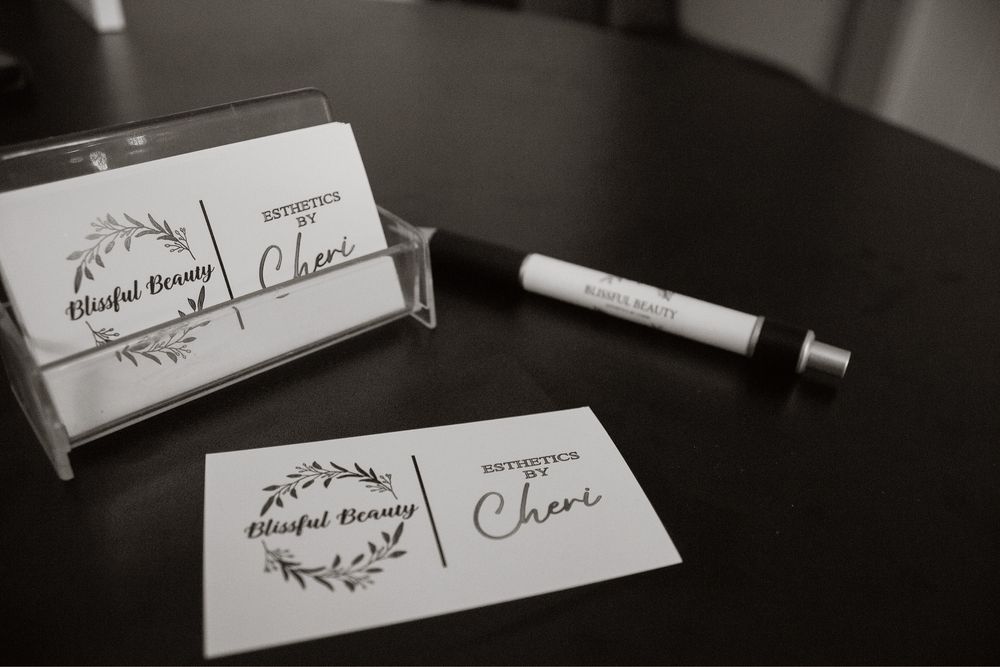 Blissful Beauty
ESTHETICS
BY
Cheri
BLISSFUL BEAUTY
Blissful Beauty
ESTHETICS
BY
Cheri